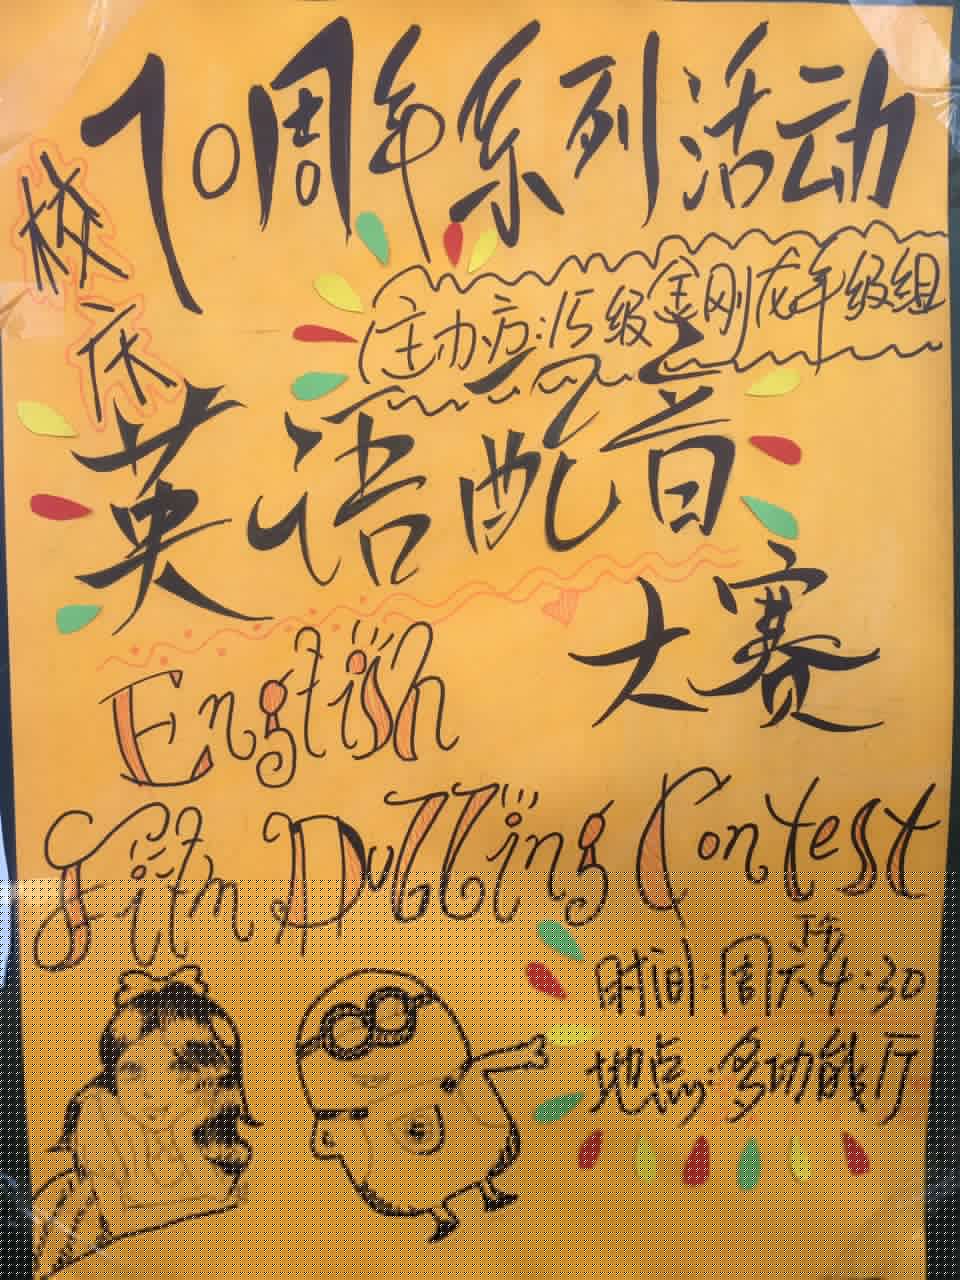 校庆
70周年系列活动
主办方:15级金刚龙年级组
英语配音
大赛
English
Film Dubbing Contest
下午
时间:周六4:30
地点:多功能厅